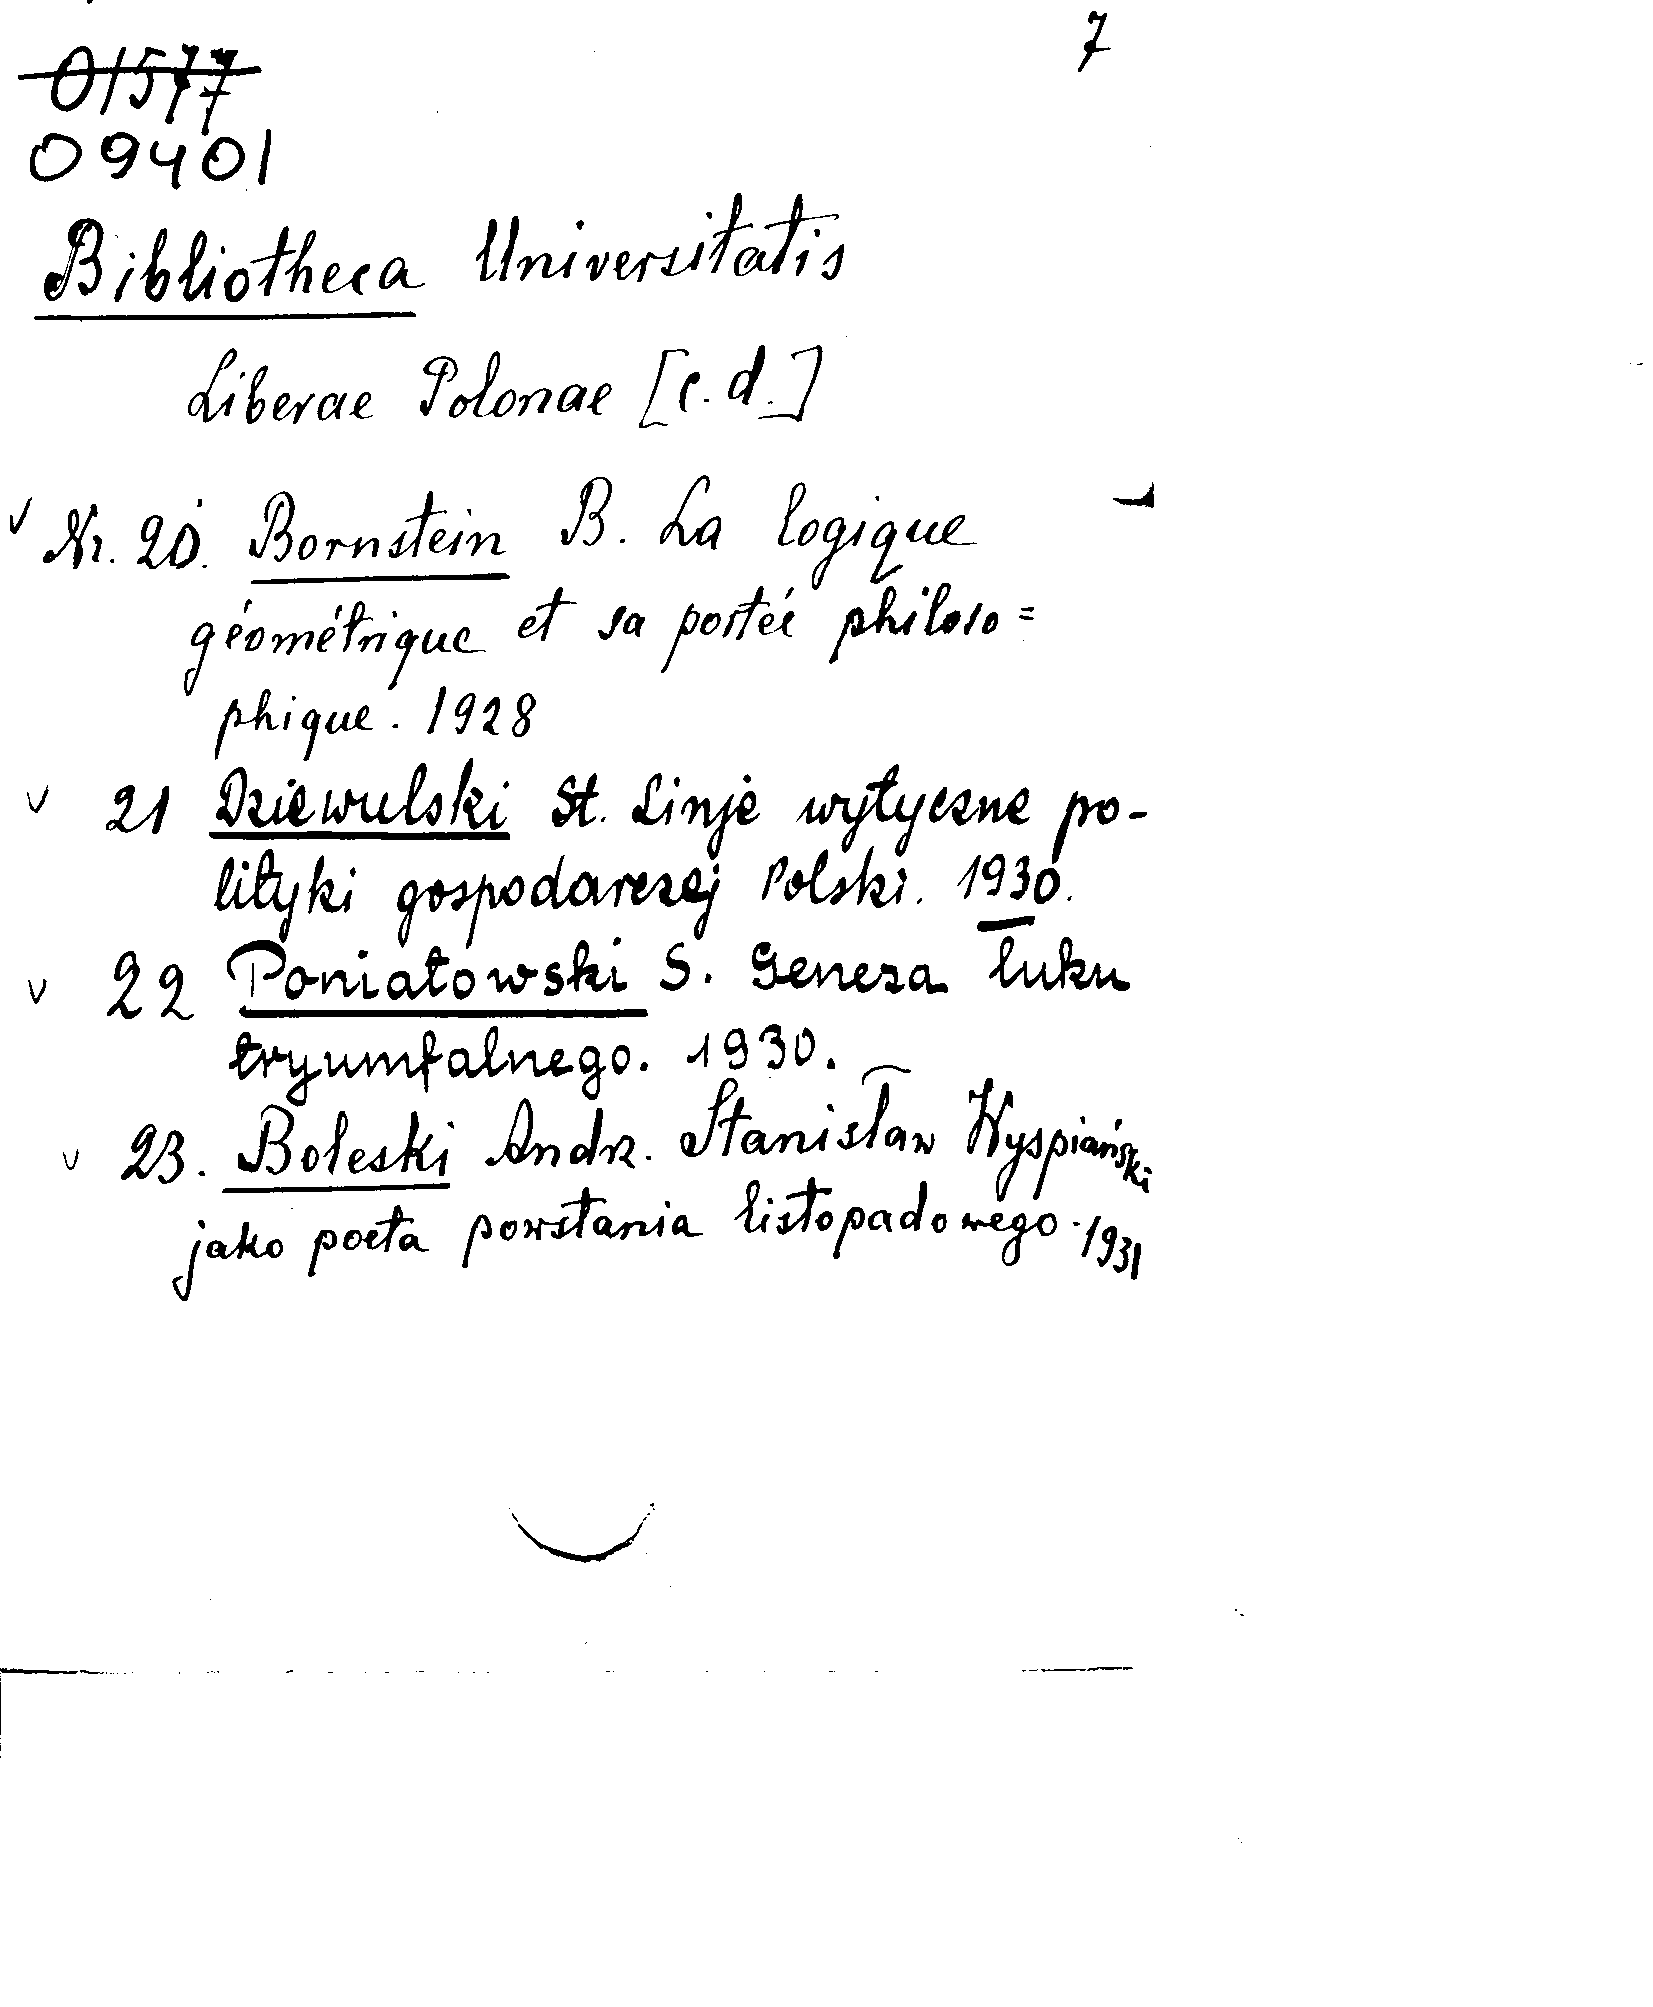 7
01577
09401
Bibliotheca Universitatis
Liberae Polonae [c.d.]
Nr. 20. Bornstein B. La logique
géométrique et sa porteé philoso=
phique. 1928
21 Dziewulski St. Linje wytyczne po-
lityki gospodarczej Polski. 1930.
22 Poniatowski S. Geneza łuku
tryumfalnego. 1930.
23. Boleski Andrz. Stanisław Wyspiański
jako poeta powstania listopadowego. 1931